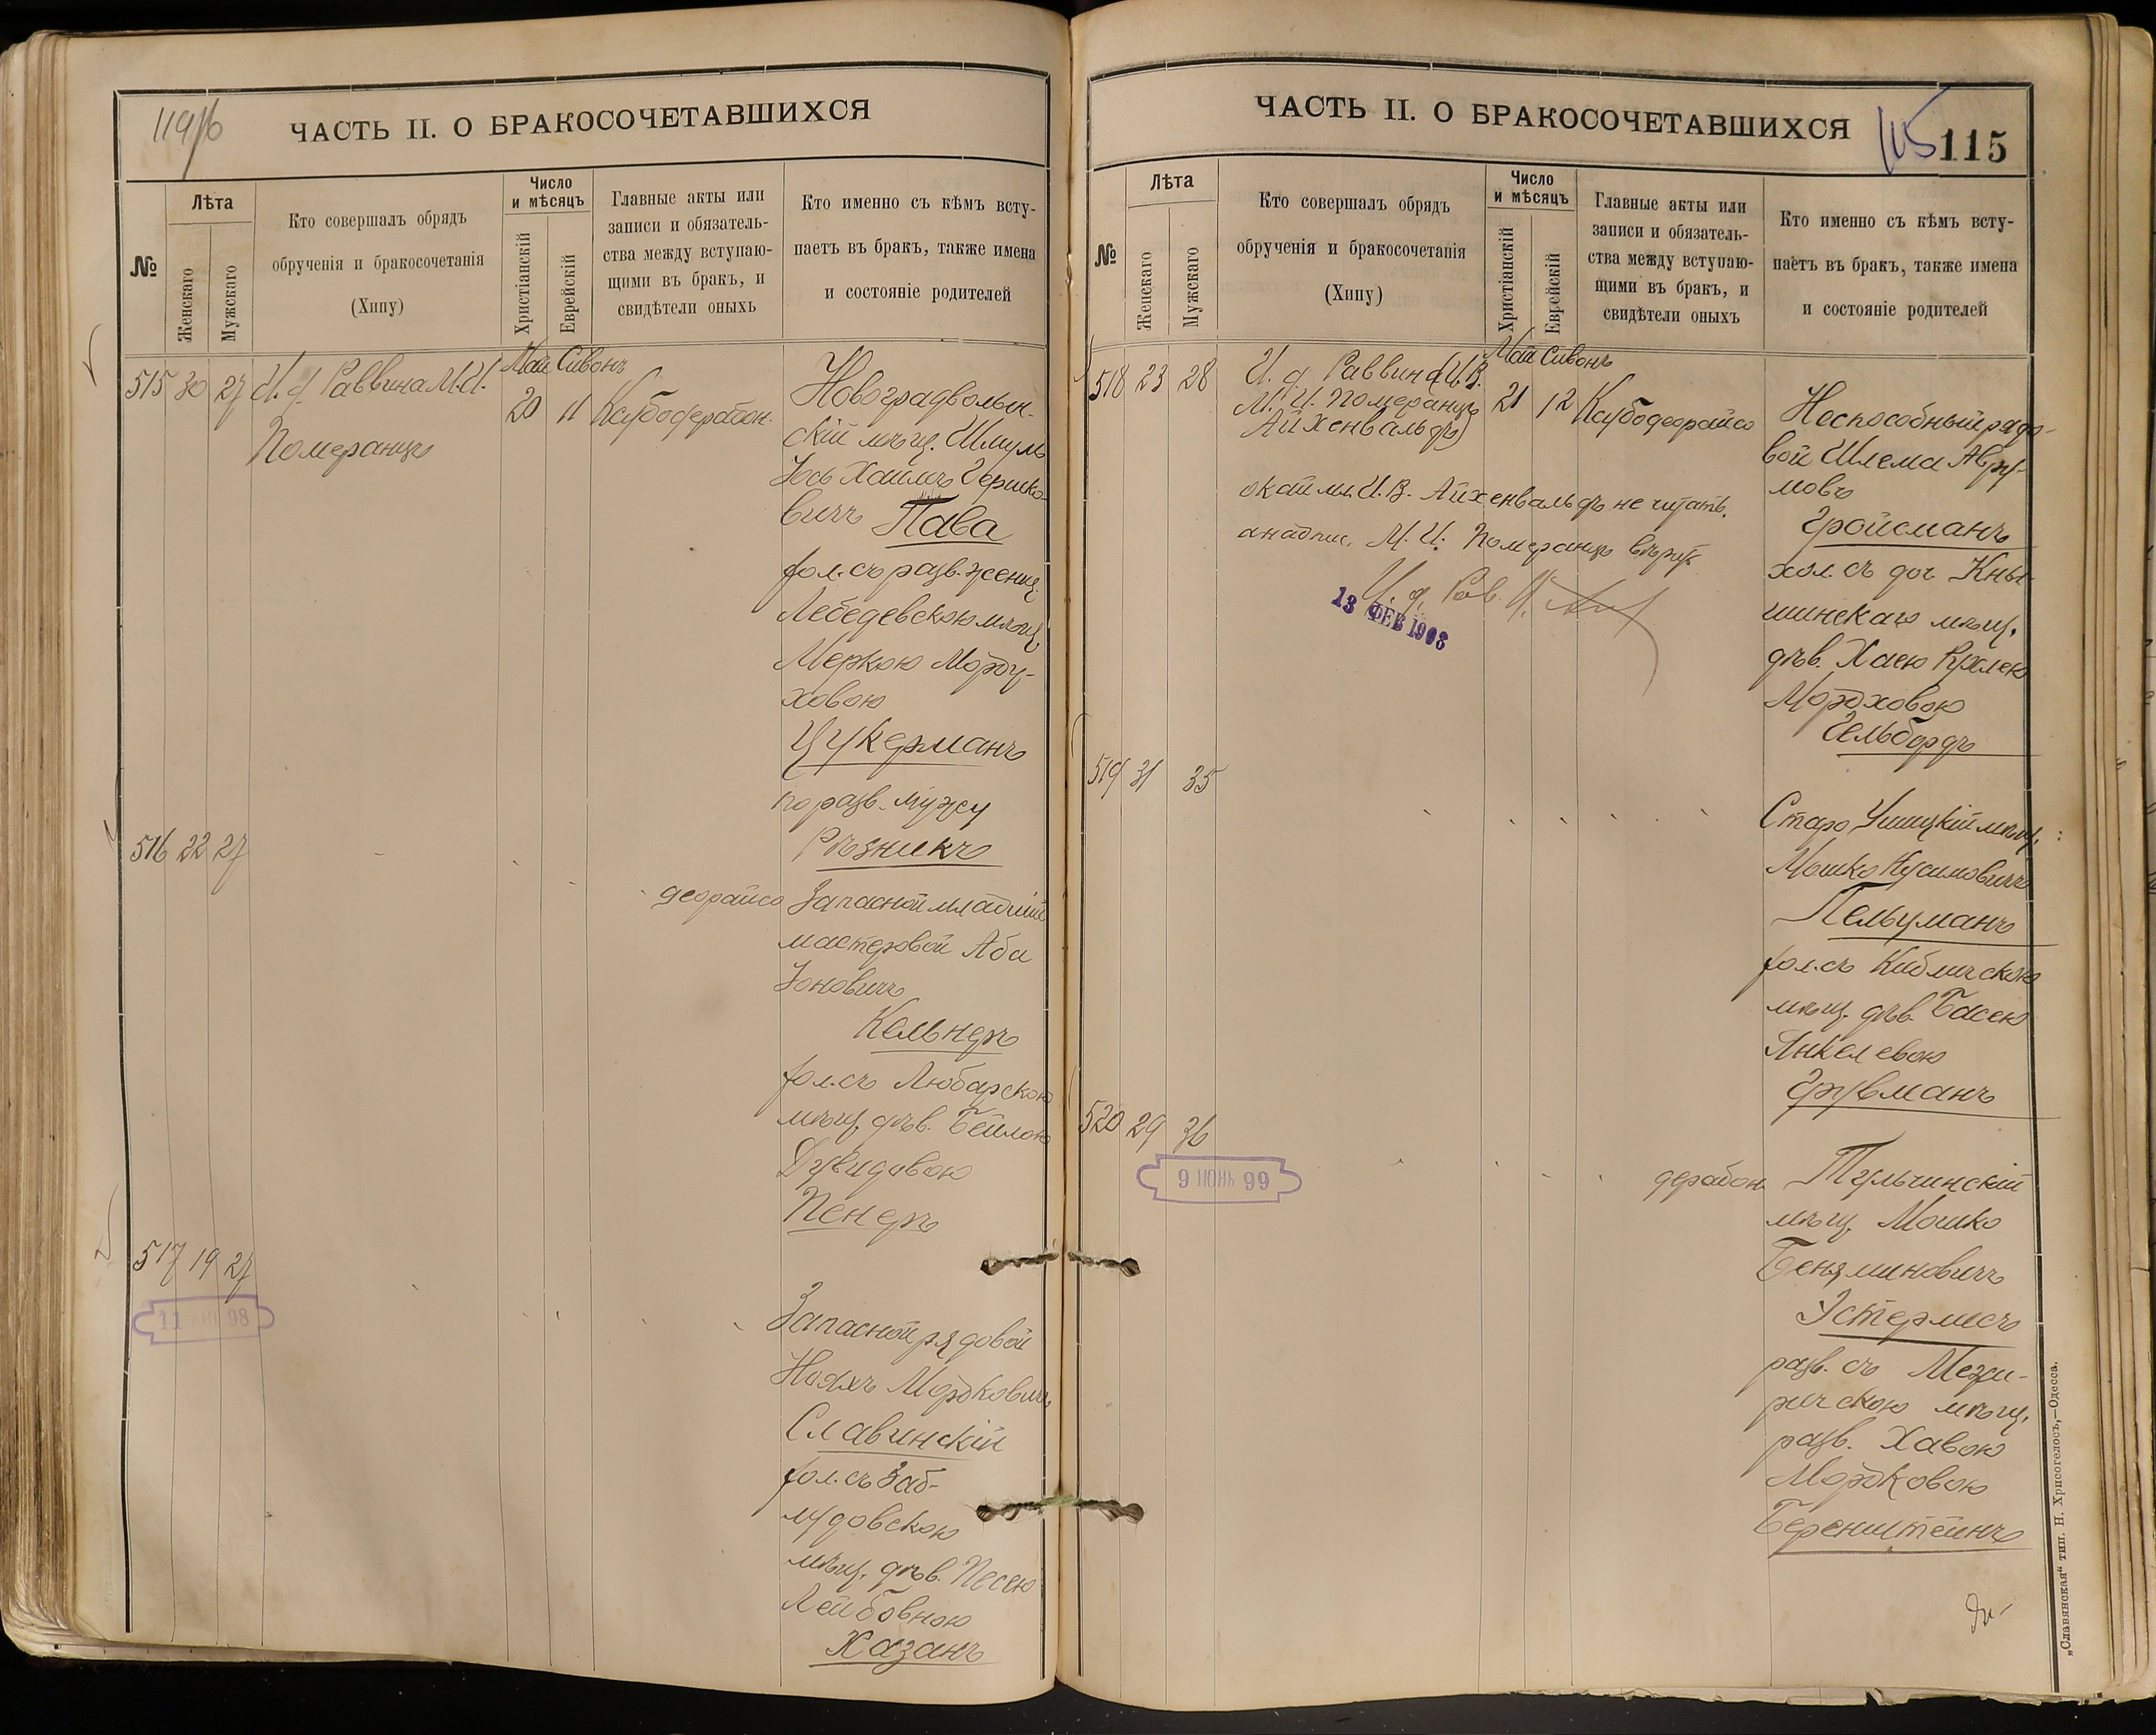 119/6
ЧАСТЬ II. О БРАКОСОЧЕТАВШИХСЯ
№
Лѣта
Женскаго
Мужскаго
Кто совершалъ обрядъ
обрученія и бракосочетанія
(Хипу)
Число
и мѣсяцъ
Христіанскій
Еврейскій
Главные акты или
записи и обязатель-
ства между вступаю-
щими въ бракъ, и
свидѣтели оныхъ
Кто именно съ кѣмъ всту-
паетъ въ бракъ, также имена
и состояніе родителей
Май Сивонъ
515 30 27 И. д. Раввина М. И.
Померанцъ
20 11 Ксубодерабон.
Новоградволын-
скій мѣщ. Шмуль
Іось Хаимъ Гершко-
вичъ Пава
хол. съ разв. женщ.
Лебедевскою мѣщ.
Меркою Морду-
ховою
Цукерманъ
по разв. мужу
Рѣзникъ
516 22 27
деорайсо Запасной младшій
мастеровой Аба
Іоновичъ
Кельнеръ
хол. съ Любарскою
мѣщ. дѣв. Бейлою
Дувидовою
Пенеръ
517 19 27
11 98
Запасной рядовой
Ноахъ Мордковичъ
Славинскій
хол. съ Заб-
лудовскою
мѣщ. дѣв. Песею
Лейбовною
Хазанъ
ЧАСТЬ II. О БРАКОСОЧЕТАВШИХСЯ
115 115
№
Лѣта
Женскаго
Мужскаго
Кто совершалъ обрядъ
обрученія и бракосочетанія
(Хипу)
Число
и мѣсяцъ
Христіанскій
Еврейскій
Главные акты или
записи и обязатель-
ства между вступаю-
щими въ бракъ, и
свидѣтели оныхъ
Кто именно съ кѣмъ всту-
паетъ въ бракъ, также имена
и состояніе родителей
Май Сивонъ
518 23 28 И. д. Раввина (И. В.
М. И. Померанцъ
Айхенвальдъ)
21 12 Ксубодеорайсо
окаймл. И. В. Айхенвальдъ не читать,
а надпис. М. И. Померанцъ вѣрить.
И. д. Рав.
13 ФЕВ 1903
Неспособный рядо-
вой Шлема Авру-
мовъ
Гройсманъ
хол. съ доч Кны-
шинскаго мѣщ.
дѣв. Хаею Рухлею
Мордховою
Гельбордъ
519 31 35
Старо Ушицкій мѣщ.
Мошко Нусимовичъ
Пельцманъ
хол. съ Кибличскою
мѣщ. дѣв. Басею
Янкелевою
Грувманъ
520 29 36
9 ІЮНЬ 99
дерабон. Тульчинскій
мѣщ. Мошко
Беняминовичъ
Эстермесъ
разв. съ Межи-
ричскою мѣщ.
разв. Хавою
Мордковою
Беренштейнъ
„Славянская“ тип. Н. Хрисогелосъ,—Одесса.